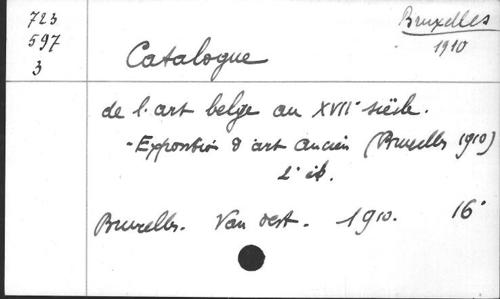 723
597
3
Bruxelles
1910
Catalogue
de l'art belge au XVIIe siècle.
- Exposition d'art ancien (Bruxelles 1910)
2e éd.
Bruxelles. Van Oest. 1910. 16°